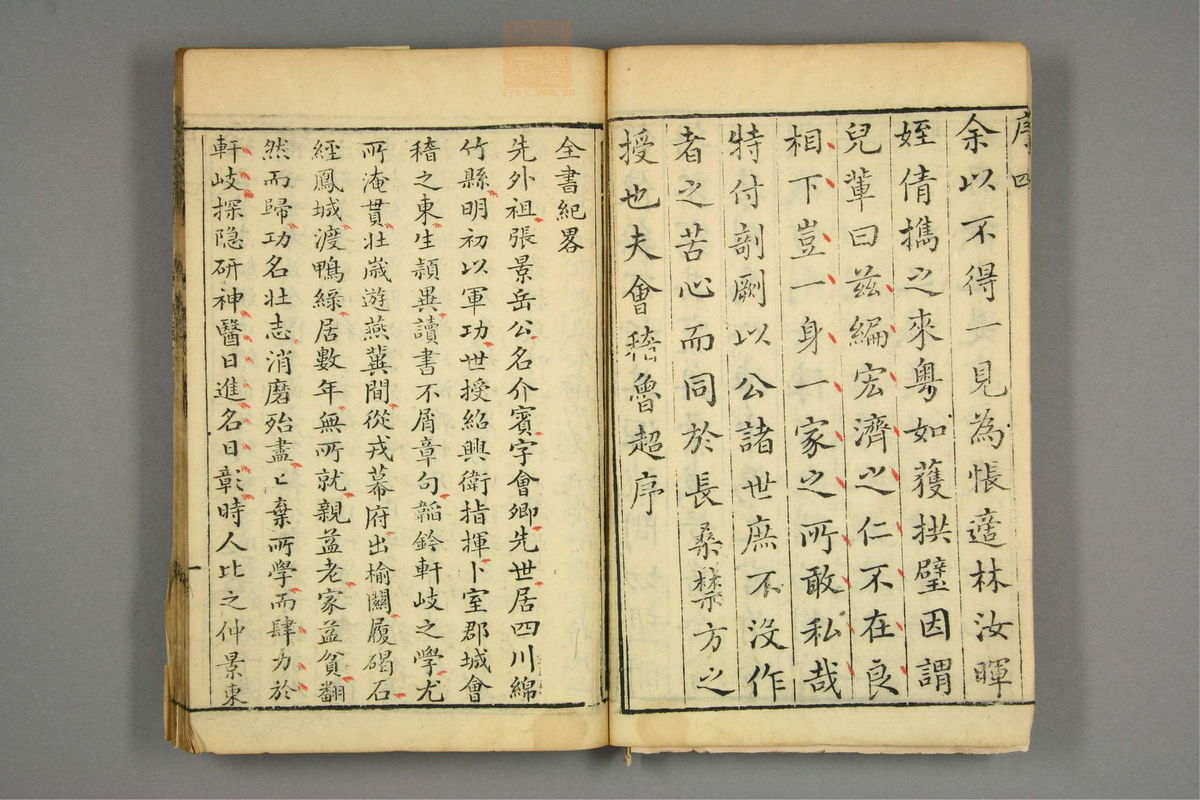 序四
余以不得一見為悵適林汝暉
姪倩攜之來粤如獲拱璧因謂
兒輩曰兹編宏濟之仁不在良
相下豈一身一家之所敢私哉
特付剞劂以公諸世庶不没作
者之苦心而同於長桑禁方之
授也夫會稽魯超序
全書紀畧
先外祖張景岳公名介賓字會卿先世居四川綿
竹縣明初以軍功世授紹興衛指揮卜室郡城會
稽之東生頴異讀書不屑章句韜鈐軒岐之學尤
所淹貫壯歳遊燕冀間從戎幕府出榆關履碣石
經鳳城渡鴨緑居數年無所就親益老家益貧翻
然而歸功名壯志消磨殆盡〻棄所學而肆力於
軒岐探隐研神醫日進名日彰時人比之仲景東
一